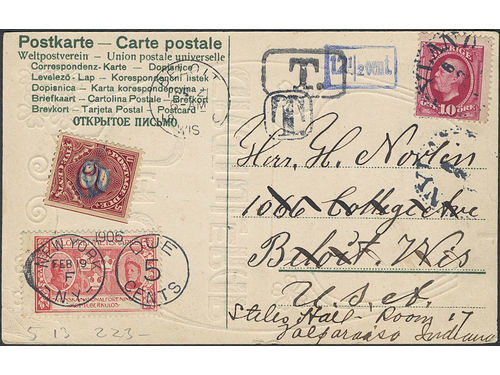 Postkarte — Carte postale
Weltpostverein - Union postale universelle
Correspondenz-Karte — Dopisnice
Levelező-Lap - Korespondenční lístek
Dopisnica - Karta korespondencyjna
Briefkaart - Cartolina Postale - Brefkort
Brevkort - Tarjeta Postal - Postcard
ОТКРЫТОЕ ПИСЬМО
WIS
T.
12½ cent.
T
SVERIGE
10 ÖRE
Herr. H. Nortin
1006 College ave
Beloit. Wis
U. S. A.
Stiles Hall - Room 17
Valparaiso Indiana
NEW YORK
FEB 19
1905
DUE
5
CENTS
5 13 223-